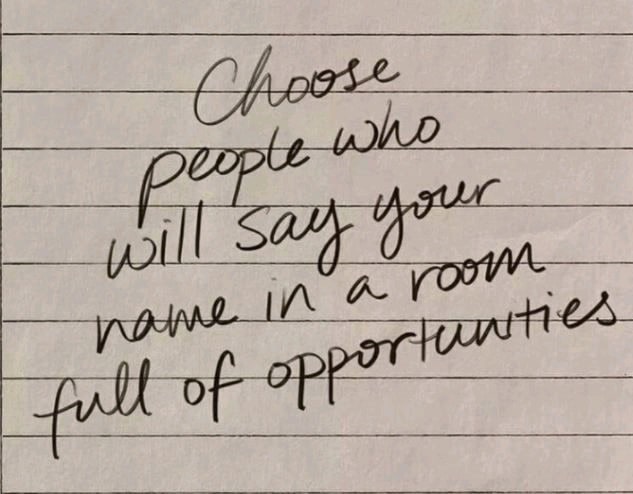 Choose
people who
will say your
name in a room
full of opportunities